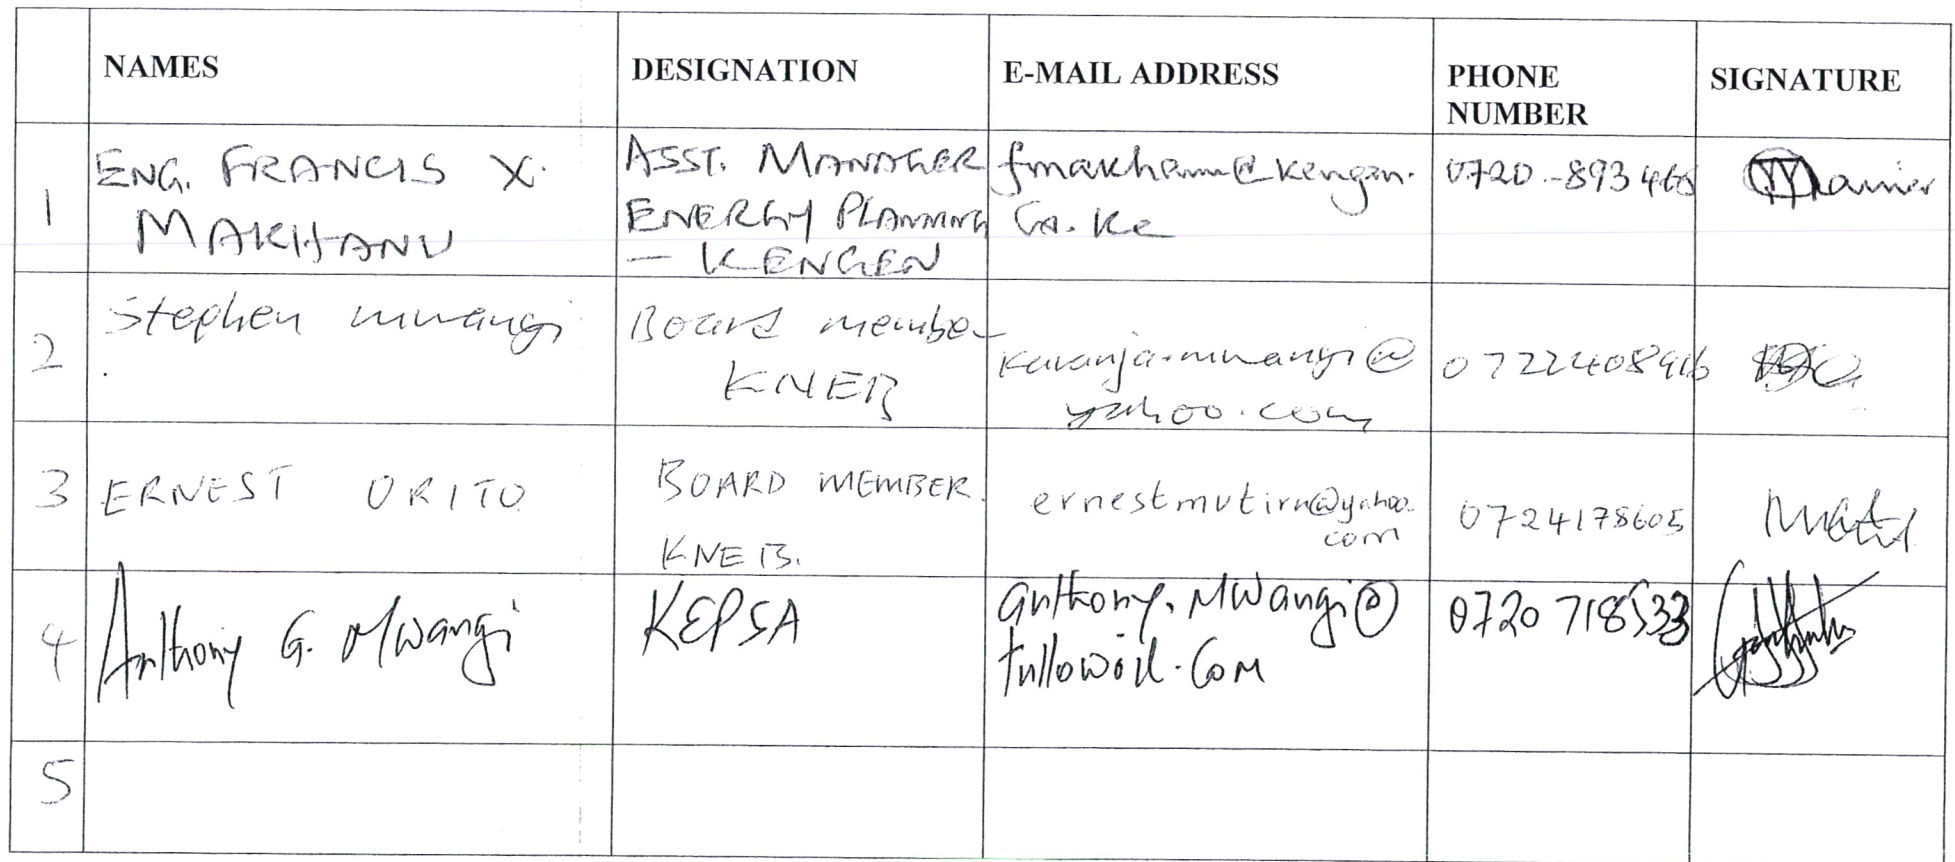 NAMES DESIGNATION E-MAIL ADDRESS PHONE NUMBER SIGNATURE
1 ENG. FRANCIS X. MAKHANU
ASST. MANAGER
ENERGY PLANNING
— KENGEN
fmakhanu@kengen.
Co.Ke
0720-893466
2 Stephen mwangi
Board member
KNEB
karanja.mwangi@
yahoo.com
0722408916
3 ERNEST ORITO
BOARD MEMBER.
KNEB.
@yahoo.
com
0724178605
4 Anthony G. Mwangi
KEPSA
anthony.Mwangi@
tullowoil.Com
0720 718533
5